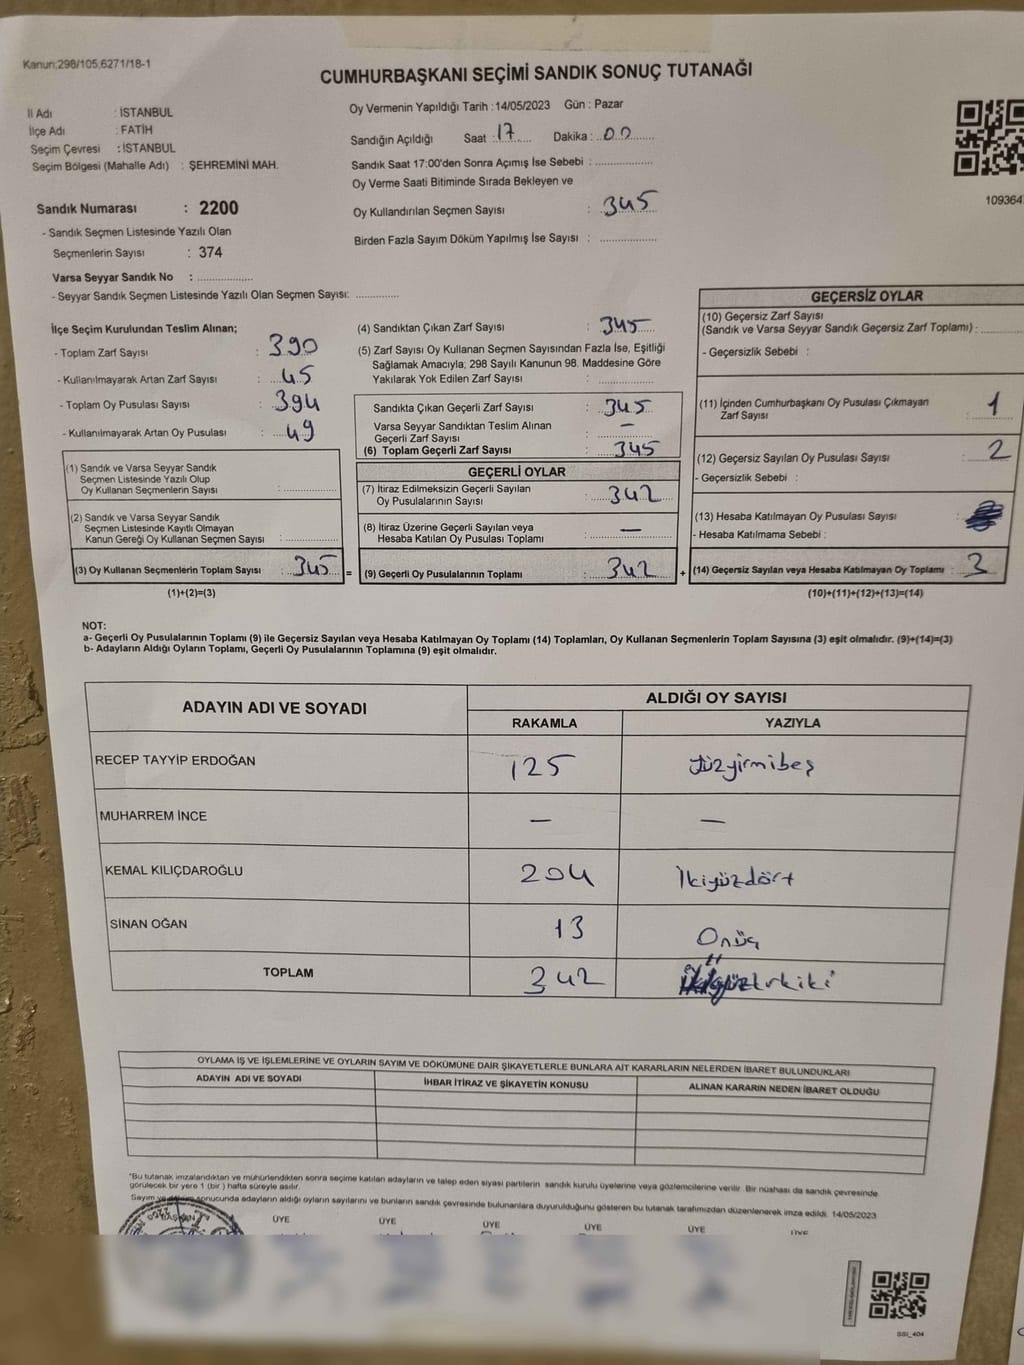 Kanun;298/105,6271/18-1
CUMHURBAŞKANI SEÇİMİ SANDIK SONUÇ TUTANAĞI
İl Adı : İSTANBUL
İlçe Adı : FATİH
Seçim Çevresi : İSTANBUL
Seçim Bölgesi (Mahalle Adı) : ŞEHREMİNİ MAH.
Sandık Numarası : 2200
- Sandık Seçmen Listesinde Yazılı Olan
Seçmenlerin Sayısı : 374
Varsa Seyyar Sandık No :
- Seyyar Sandık Seçmen Listesinde Yazılı Olan Seçmen Sayısı:
Oy Vermenin Yapıldığı Tarih : 14/05/2023 Gün : Pazar
Sandığın Açıldığı Saat : 17 Dakika : 00
Sandık Saat 17:00'den Sonra Açımış İse Sebebi :
Oy Verme Saati Bitiminde Sırada Bekleyen ve
Oy Kullandırılan Seçmen Sayısı : 345
Birden Fazla Sayım Döküm Yapılmış İse Sayısı :
109364
İlçe Seçim Kurulundan Teslim Alınan;
- Toplam Zarf Sayısı : 390
- Kullanılmayarak Artan Zarf Sayısı : 45
- Toplam Oy Pusulası Sayısı : 394
- Kullanılmayarak Artan Oy Pusulası : 49
(1) Sandık ve Varsa Seyyar Sandık
Seçmen Listesinde Yazılı Olup
Oy Kullanan Seçmenlerin Sayısı :
(2) Sandık ve Varsa Seyyar Sandık
Seçmen Listesinde Kayıtlı Olmayan
Kanun Gereği Oy Kullanan Seçmen Sayısı :
(3) Oy Kullanan Seçmenlerin Toplam Sayısı : 345 =
(1)+(2)=(3)
(4) Sandıktan Çıkan Zarf Sayısı : 345
(5) Zarf Sayısı Oy Kullanan Seçmen Sayısından Fazla İse, Eşitliği
Sağlamak Amacıyla; 298 Sayılı Kanunun 98. Maddesine Göre
Yakılarak Yok Edilen Zarf Sayısı :
Sandıkta Çıkan Geçerli Zarf Sayısı : 345
Varsa Seyyar Sandıktan Teslim Alınan
Geçerli Zarf Sayısı : —
(6) Toplam Geçerli Zarf Sayısı : 345
GEÇERLİ OYLAR
(7) İtiraz Edilmeksizin Geçerli Sayılan
Oy Pusulalarının Sayısı : 342
(8) İtiraz Üzerine Geçerli Sayılan veya
Hesaba Katılan Oy Pusulası Toplamı : —
(9) Geçerli Oy Pusulalarının Toplamı : 342 +
GEÇERSİZ OYLAR
(10) Geçersiz Zarf Sayısı
(Sandık ve Varsa Seyyar Sandık Geçersiz Zarf Toplamı) :
- Geçersizlik Sebebi :
(11) İçinden Cumhurbaşkanı Oy Pusulası Çıkmayan
Zarf Sayısı : 1
(12) Geçersiz Sayılan Oy Pusulası Sayısı : 2
- Geçersizlik Sebebi :
(13) Hesaba Katılmayan Oy Pusulası Sayısı :
- Hesaba Katılmama Sebebi :
(14) Geçersiz Sayılan veya Hesaba Katılmayan Oy Toplamı : 3
(10)+(11)+(12)+(13)=(14)
NOT:
a- Geçerli Oy Pusulalarının Toplamı (9) ile Geçersiz Sayılan veya Hesaba Katılmayan Oy Toplamı (14) Toplamları, Oy Kullanan Seçmenlerin Toplam Sayısına (3) eşit olmalıdır. (9)+(14)=(3)
b- Adayların Aldığı Oyların Toplamı, Geçerli Oy Pusulalarının Toplamına (9) eşit olmalıdır.
ADAYIN ADI VE SOYADI ALDIĞI OY SAYISI
RAKAMLA YAZIYLA
RECEP TAYYİP ERDOĞAN 125 yüzyirmibeş
MUHARREM İNCE — —
KEMAL KILIÇDAROĞLU 204 İkiyüzdört
SİNAN OĞAN 13 Onüç
TOPLAM 342
OYLAMA İŞ VE İŞLEMLERİNE VE OYLARIN SAYIM VE DÖKÜMÜNE DAİR ŞİKAYETLERLE BUNLARA AİT KARARLARIN NELERDEN İBARET BULUNDUKLARI
ADAYIN ADI VE SOYADI İHBAR İTİRAZ VE ŞİKAYETİN KONUSU ALINAN KARARIN NEDEN İBARET OLDUĞU
*Bu tutanak imzalandıktan ve mühürlendikten sonra seçime katılan adayların ve talep eden siyasi partilerin sandık kurulu üyelerine veya gözlemcilerine verilir. Bir nüshası da sandık çevresinde
görülecek bir yere 1 (bir) hafta süreyle asılır.
Sayım ve döküm sonucunda adayların aldığı oyların sayılarını ve bunların sandık çevresinde bulunanlara duyurulduğunu gösteren bu tutanak tarafımızdan düzenlenerek imza edildi. 14/05/2023
BAŞKAN ÜYE ÜYE ÜYE ÜYE ÜYE ÜYE
SSİ_404